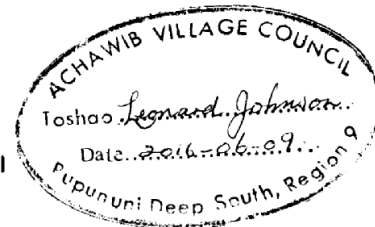 ACHAWIB VILLAGE COUNCIL
Toshao Leonard Johnson
Date 2016-06-09
Rupununi Deep South, Region 9